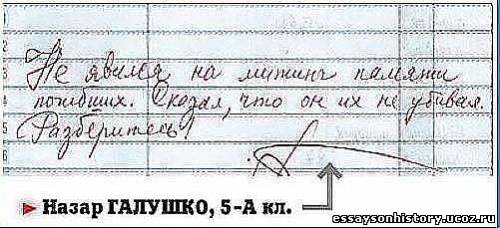 1
2
3
4
5
6
Не явился на митинг памяти
погибших. Сказал, что он их не убивал.
Разберитесь!
Назар ГАЛУШКО, 5-А кл.
essaysonhistory.ucoz.ru